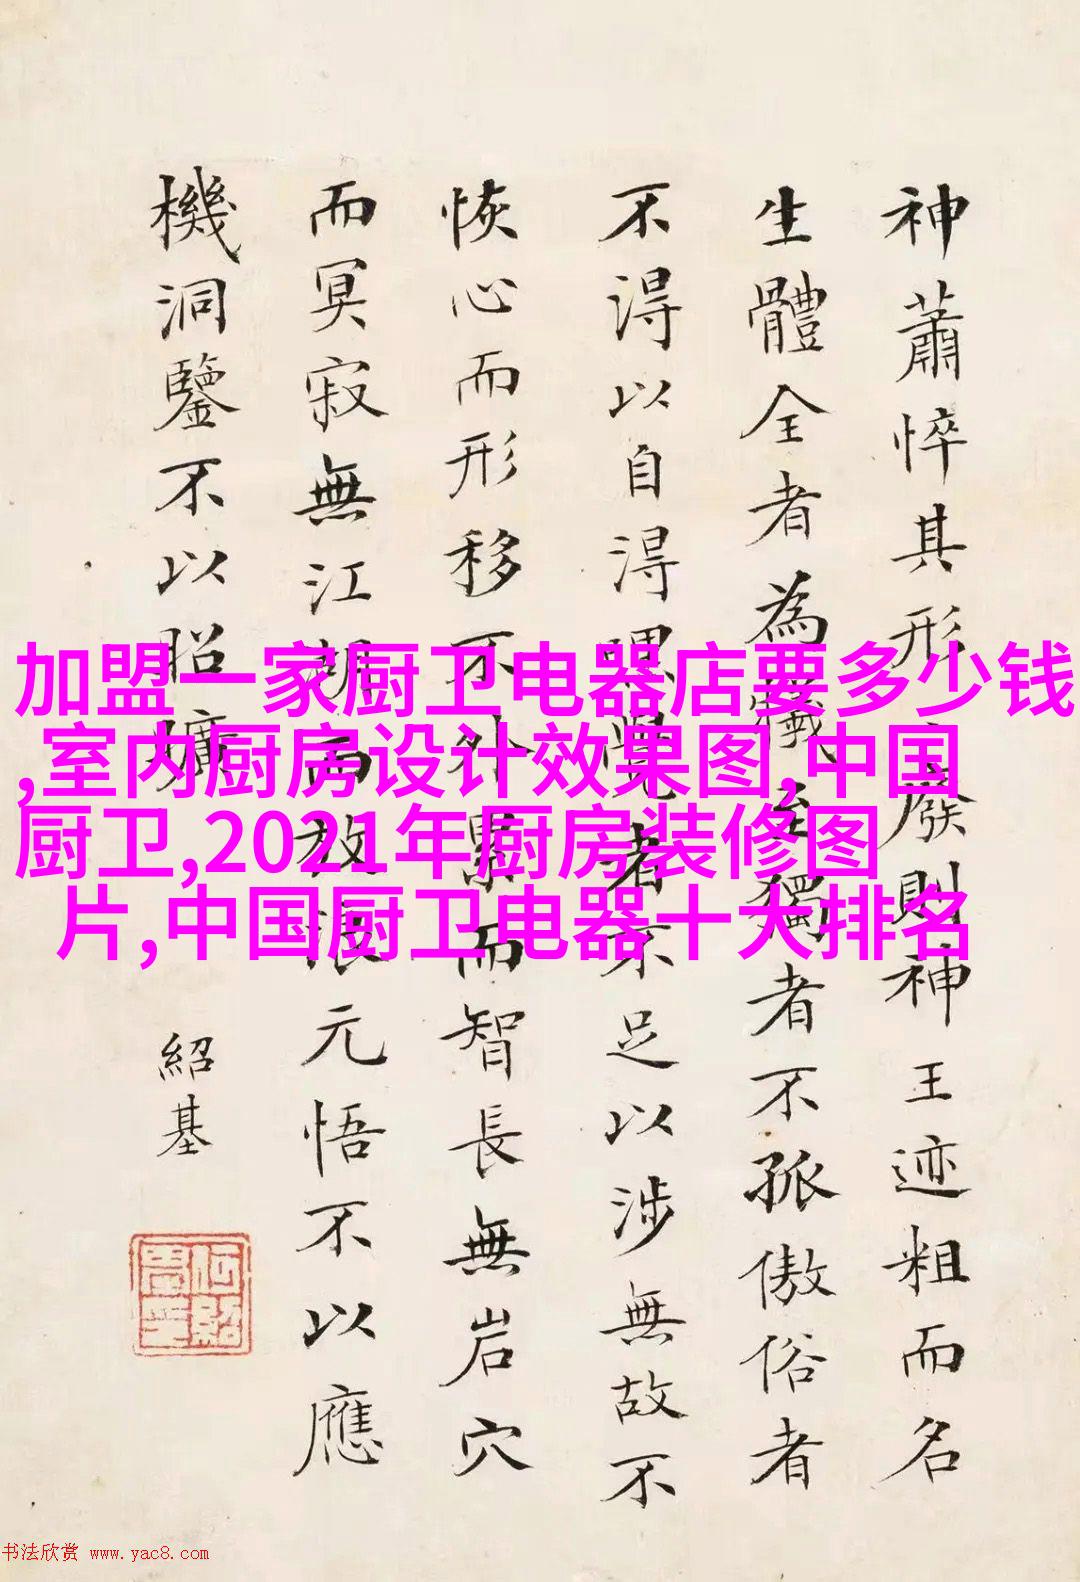 加盟一家厨卫电器店要多少钱
,室内厨房设计效果图,中国
厨卫,2021年厨房装修图
片,中国厨卫电器十大排名
神蕭悴其形廢則神王迹粗而名
生體全者為犧至獨者不孤傲俗者
不得以自得覺者不足以涉無故不
恢心而形移不外累而智長無岩穴
而冥寂無江湖而放浪元悟不以應
機洞鑒不以昭
紹基
书法欣赏 www.yac8.com